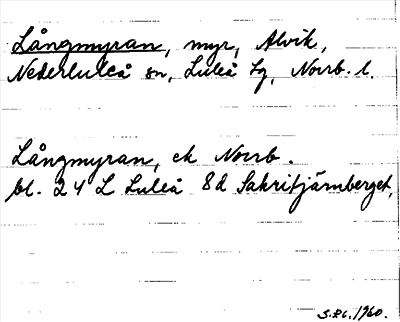 Långmyran, myr, Alvik,
Nederluleå sn, Luleå tg, Norrb. l.
Långmyran, ek Norrb.
bl. 24 L Luleå 8d Sakritjärnberget,
1960.